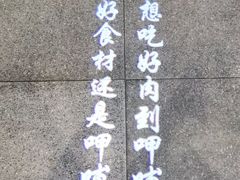 想吃好肉到呷哺
好食材还是呷哺